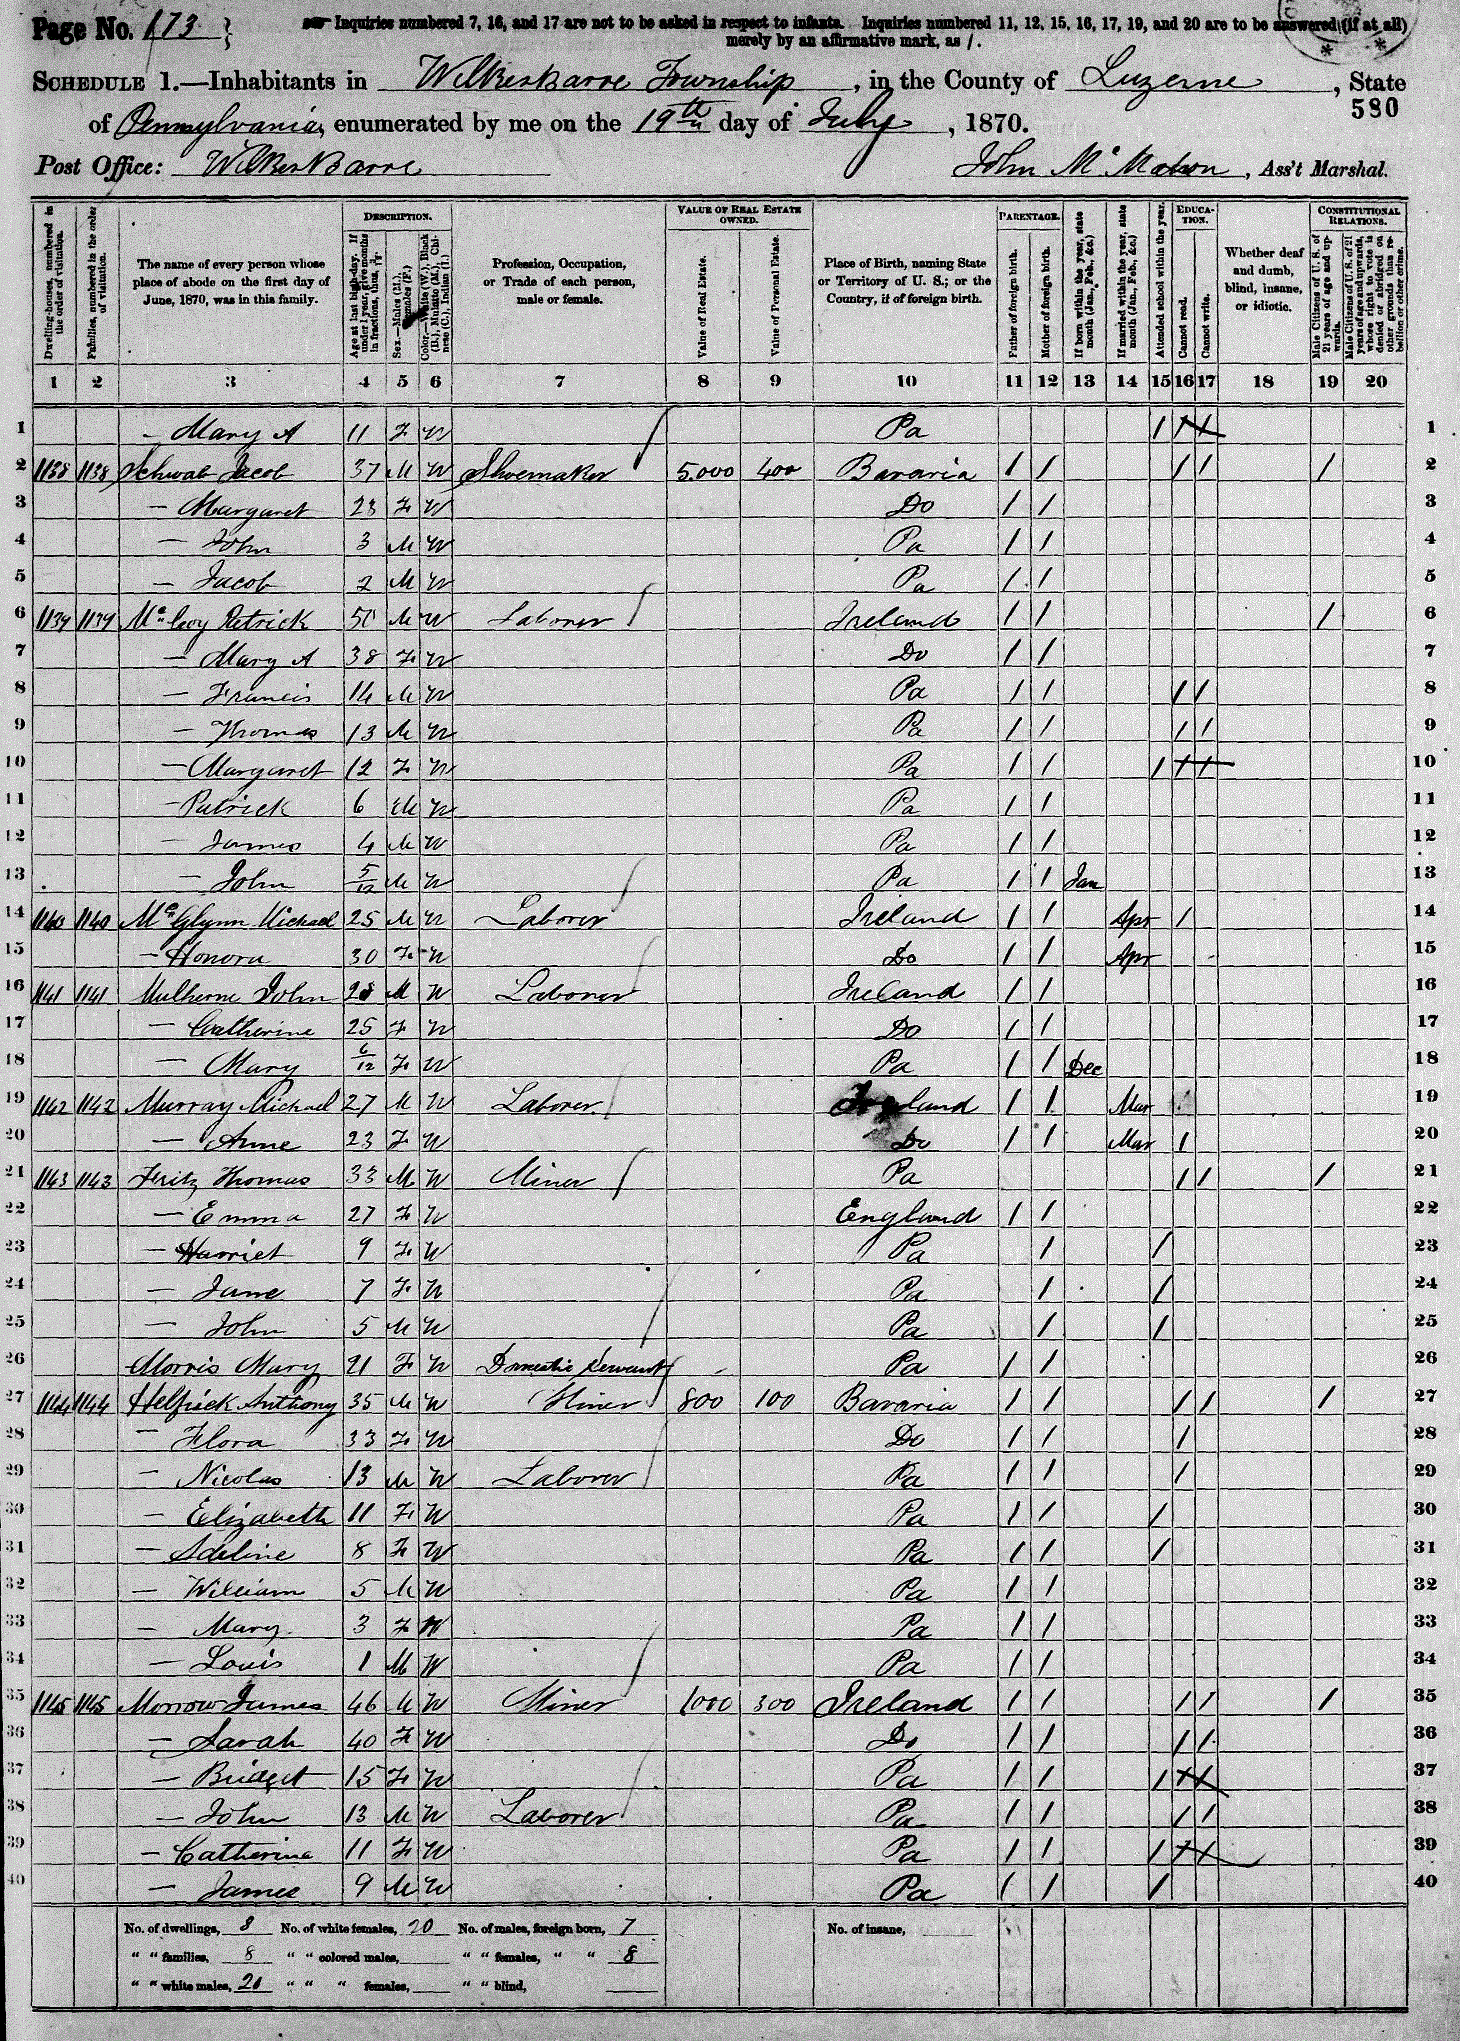 Page No. 173
Inquiries numbered 7, 16, and 17 are not to be asked in respect to infants. Inquiries numbered 11, 12, 15, 16, 17, 19, and 20 are to be answered (if at all)
merely by an affirmative mark, as /.
SCHEDULE 1.—Inhabitants in Wilkesbarre Township, in the County of Luzerne, State
580
of Pennsylvania, enumerated by me on the 19th day of July, 1870.
Post Office: Wilkes Barre John McMahon, Ass't Marshal.
DESCRIPTION. VALUE OF REAL ESTATE OWNED. PARENTAGE. EDUCATION. CONSTITUTIONAL RELATIONS.
Dwelling-houses, numbered in the order of visitation.
Families, numbered in the order of visitation.
The name of every person whose place of abode on the first day of June, 1870, was in this family.
Age at last birth-day. If under 1 year, give months in fractions, thus, 3/12.
Sex.—Males (M.), Females (F.)
Color.—White (W.), Black (B.), Mulatto (M.), Chinese (C.), Indian (I.)
Profession, Occupation, or Trade of each person, male or female.
Value of Real Estate.
Value of Personal Estate.
Place of Birth, naming State or Territory of U. S.; or the Country, if of foreign birth.
Father of foreign birth.
Mother of foreign birth.
If born within the year, state month (Jan., Feb., &c.)
If married within the year, state month (Jan., Feb., &c.)
Attended school within the year.
Cannot read.
Cannot write.
Whether deaf and dumb, blind, insane, or idiotic.
Male Citizens of U. S. of 21 years of age and upwards.
Male Citizens of U. S. of 21 years of age and upwards, whose right to vote is denied or abridged on other grounds than rebellion or other crime.
1 2 3 4 5 6 7 8 9 10 11 12 13 14 15 16 17 18 19 20
1 — Mary A 11 F W Pa / / / 1
2 1138 1138 Schwab Jacob 37 M W Shoemaker 5.000 400 Bavaria / / / / / 2
3 — Margaret 28 F W Do / / 3
4 — John 3 M W Pa / / 4
5 — Jacob 2 M W Pa / / 5
6 1139 1139 McCoy Patrick 50 M W Laborer Ireland / / / 6
7 — Mary A 38 F W Do / / 7
8 — Francis 14 M W Pa / / / / 8
9 — Thomas 13 M W Pa / / / / 9
10 — Margaret 12 F W Pa / / / / / 10
11 — Patrick 6 M W Pa / / 11
12 — James 4 M W Pa / / 12
13 — John 5/12 M W Pa / / Jan 13
14 1140 1140 McGlynn Michael 25 M W Laborer Ireland / / Apr / 14
15 — Honora 30 F W Do / / Apr 15
16 1141 1141 Mulherne John 28 M W Laborer Ireland / / 16
17 — Catherine 25 F W Do / / 17
18 — Mary 6/12 F W Pa / / Dec 18
19 1142 1142 Murray Michael 27 M W Laborer / / Mar 19
20 — Anne 23 F W Do / / Mar / 20
21 1143 1143 Fritz Thomas 33 M W Miner Pa / / / 21
22 — Emma 27 F W England / / 22
23 — Harriet 9 F W Pa / / 23
24 — Jane 7 F W Pa / / 24
25 — John 5 M W Pa / / 25
26 Morris Mary 21 F W Domestic Servant Pa / / 26
27 1144 1144 Helfrick Anthony 35 M W Miner 800 100 Bavaria / / / / / 27
28 — Flora 33 F W Do / / / 28
29 — Nicolas 13 M W Laborer Pa / / / 29
30 — Elizabeth 11 F W Pa / / / 30
31 — Adeline 8 F W Pa / / / 31
32 — William 5 M W Pa / / 32
33 — Mary 3 F W Pa / / 33
34 — Louis 1 M W Pa / / 34
35 1145 1145 Morrow James 46 M W Miner 1000 300 Ireland / / / / / 35
36 — Sarah 40 F W Do / / / / 36
37 — Bridget 15 F W Pa / / / / / 37
38 — John 13 M W Laborer Pa / / / / 38
39 — Catherine 11 F W Pa / / / / / 39
40 — James 9 M W Pa / / / 40
No. of dwellings, 8 No. of white females, 20 No. of males, foreign born, 7 No. of insane,
" " families, 8 " " colored males, " " females, " " 8
" " white males, 20 " " " females, " " blind,